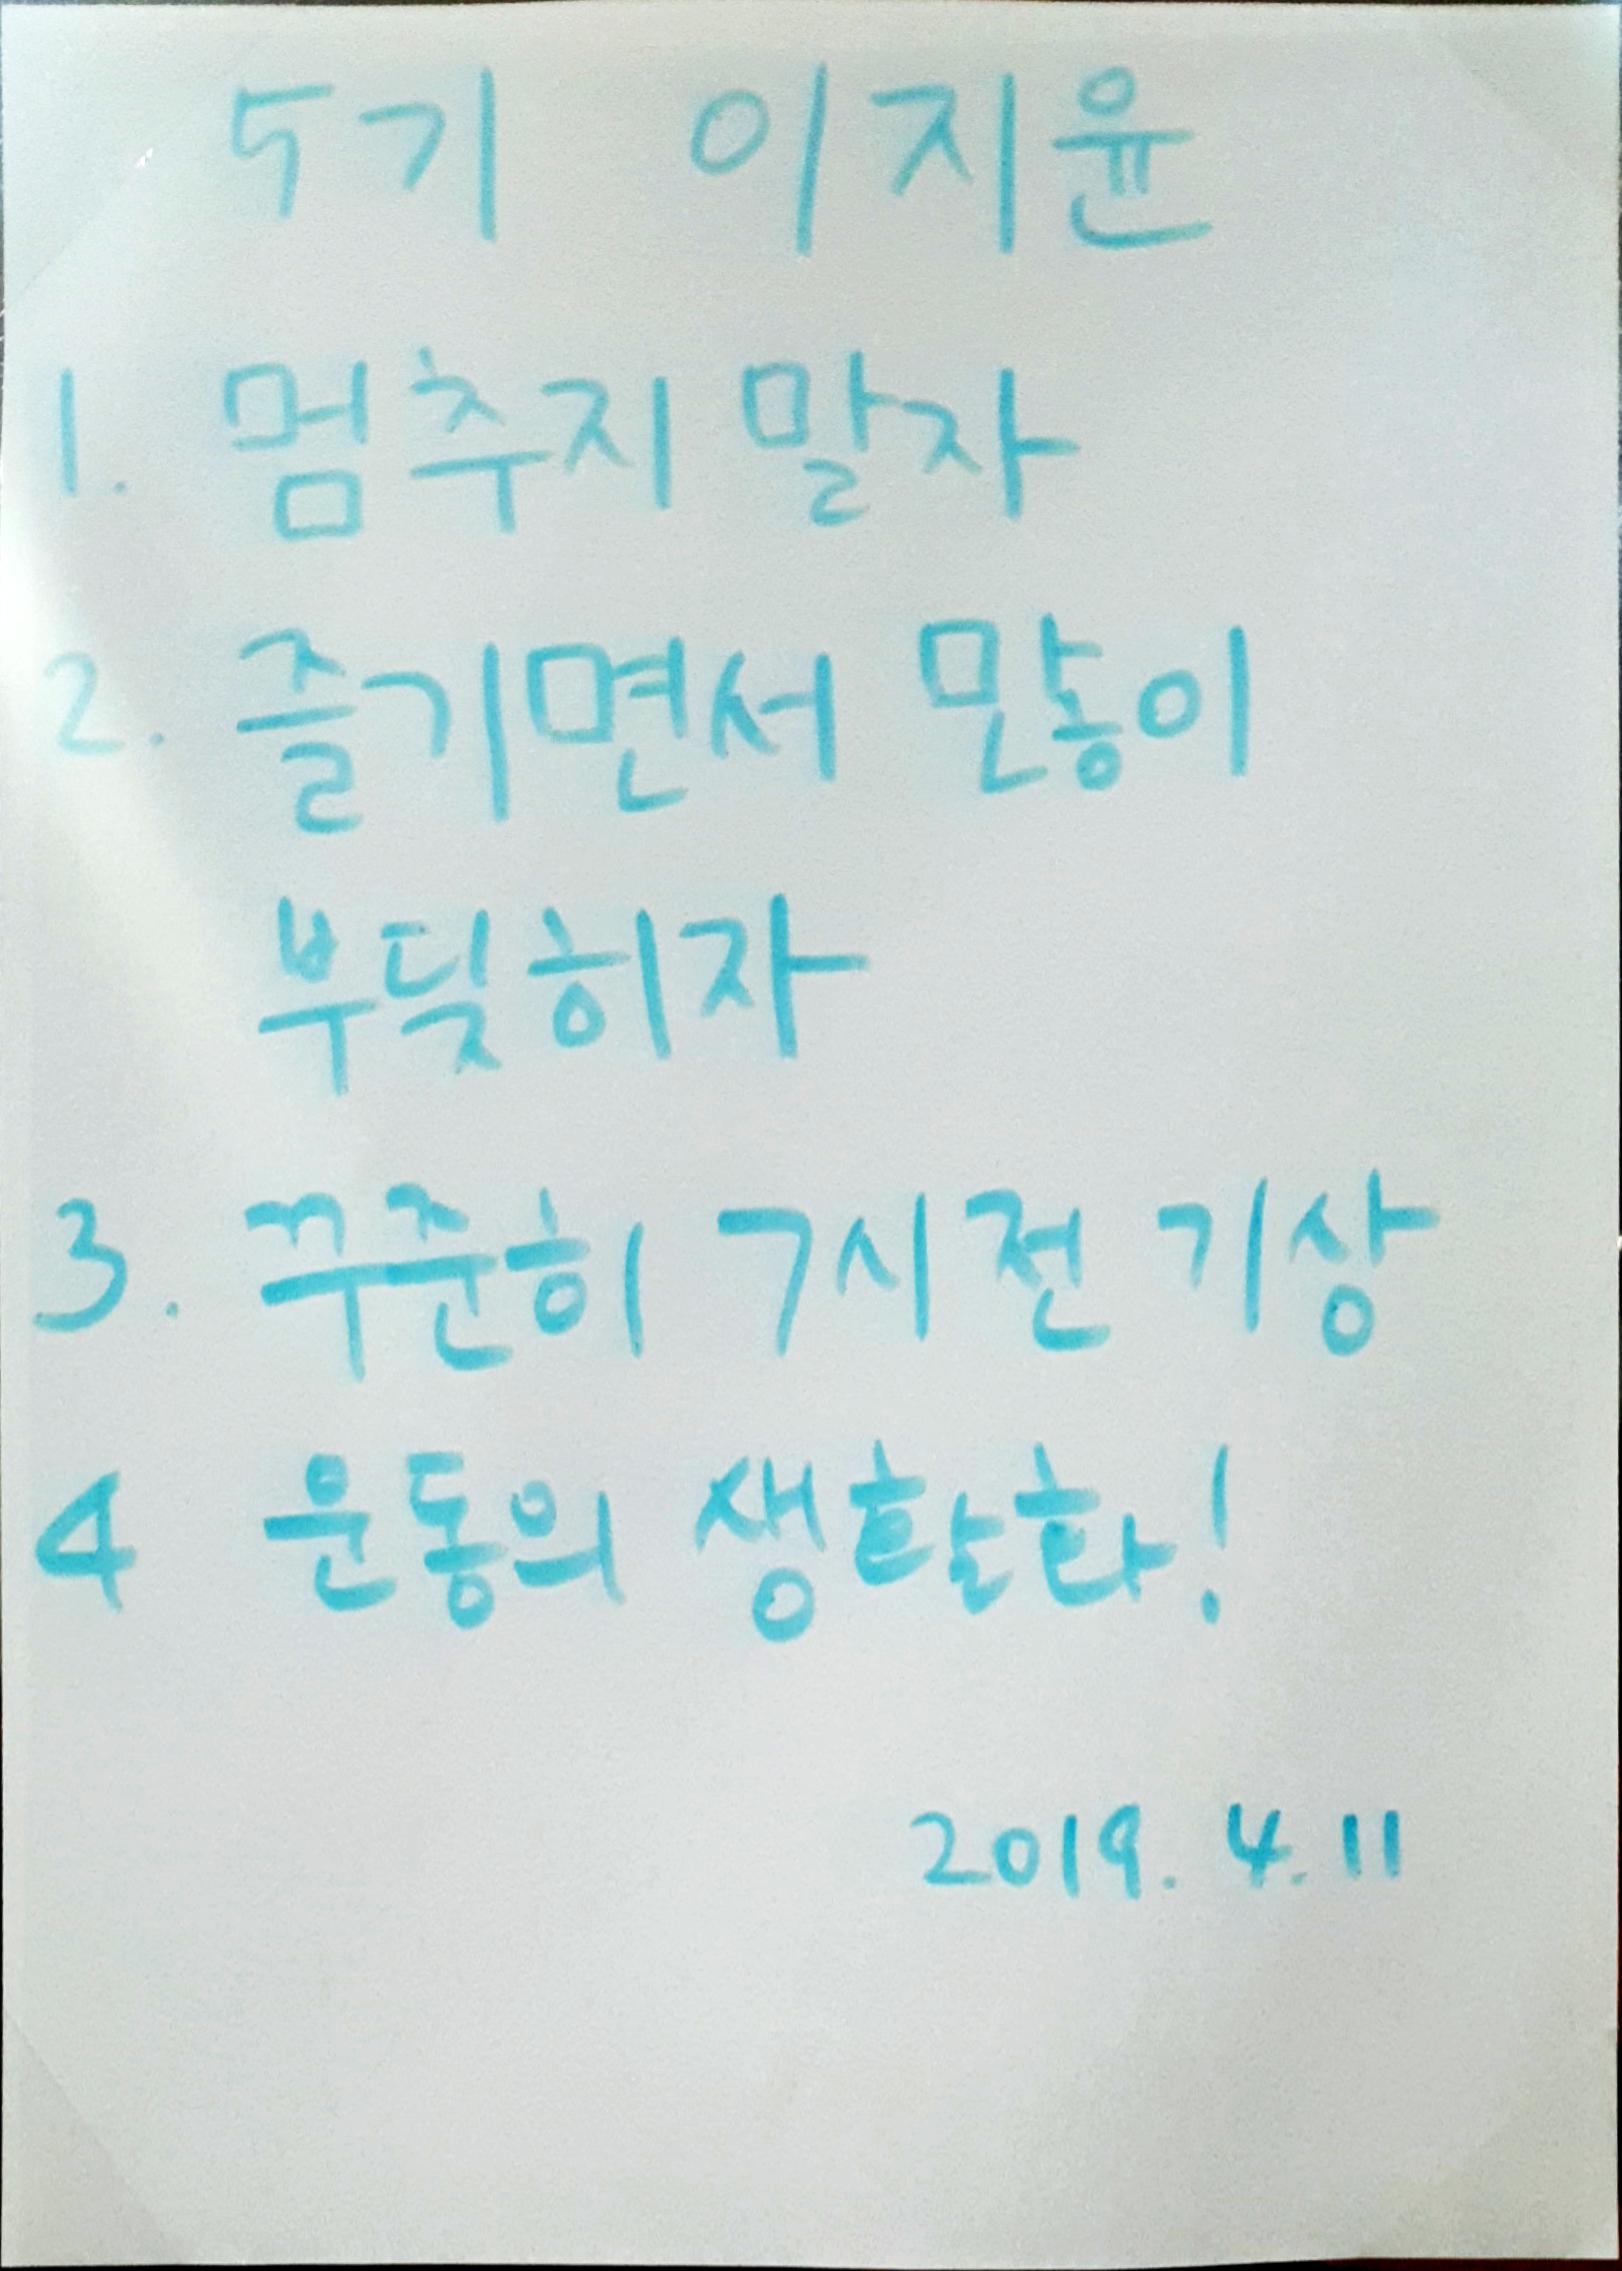 5기 이지윤
1. 멈추지 말자
2. 즐기면서 많이
부딪히자
3. 꾸준히 7시전 기상
4 운동의 생활화!
2019. 4. 11